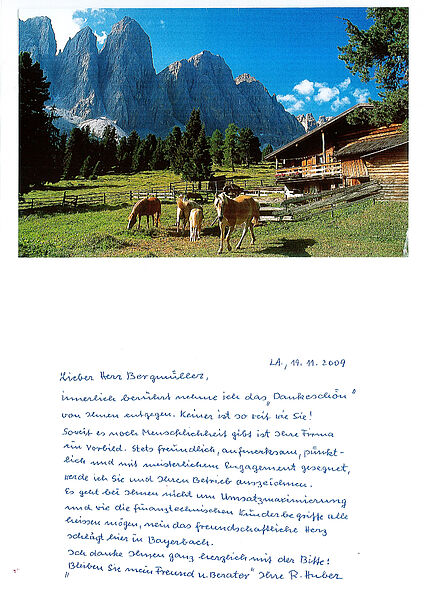 LA., 19.11.2009
Lieber Herr Bergmüller,
innerlich berührt nehme ich das „Dankeschön"
von Ihnen entgegen. Keiner ist so weit wie Sie!
Soweit es noch Menschlichkeit gibt ist Ihre Firma
ein Vorbild. Stets freundlich, aufmerksam, pünkt-
lich und mit meisterlichem Engagement gesegnet,
werde ich Sie und Ihren Betrieb auszeichnen.
Es geht bei Ihnen nicht um Umsatzmaximierung
und wie die finanztechnischen Kinderbegriffe alle
heissen mögen, nein das freundschaftliche Herz
schlägt hier in Bayerbach.
Ich danke Ihnen ganz herzlich mit der Bitte!
"Bleiben Sie mein Freund u. Berater" Ihre R. Huber